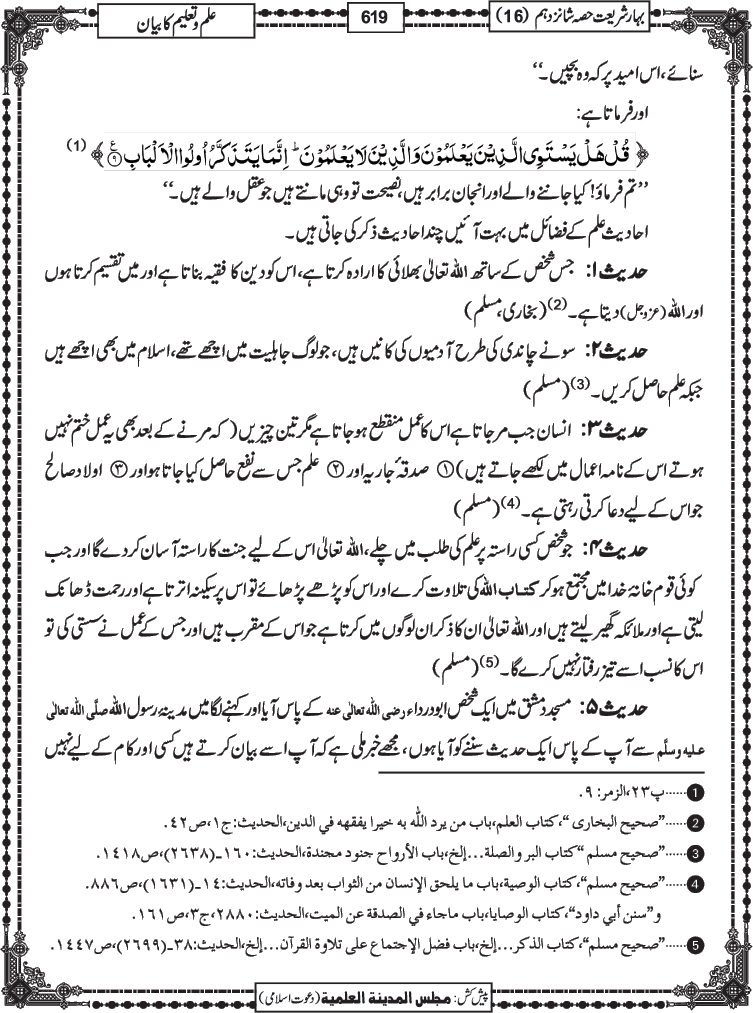 بہارِ شریعت حصہ شانزدہم (16)
619
علم و تعلیم کا بیان
سنائے، اس امید پر کہ وہ بچیں۔‘‘
اور فرماتا ہے:
﴿ قُلْ هَلْ يَسْتَوِى الَّذِيْنَ يَعْلَمُوْنَ وَالَّذِيْنَ لَا يَعْلَمُوْنَ ؕ اِنَّمَا يَتَذَكَّرُ اُولُوا الْاَلْبَابِ ﴾ (1)
’’تم فرماؤ! کیا جاننے والے اور انجان برابر ہیں، نصیحت تو وہی مانتے ہیں جو عقل والے ہیں۔‘‘
احادیث علم کے فضائل میں بہت آئیں چند احادیث ذکر کی جاتی ہیں۔
حدیث ۱: جس شخص کے ساتھ اللہ تعالیٰ بھلائی کا ارادہ کرتا ہے، اس کو دین کا فقیہ بناتا ہے اور میں تقسیم کرتا ہوں
اور اللہ (عزوجل) دیتا ہے۔(2) (بخاری، مسلم)
حدیث ۲: سونے چاندی کی طرح آدمیوں کی کانیں ہیں، جو لوگ جاہلیت میں اچھے تھے، اسلام میں بھی اچھے ہیں
جبکہ علم حاصل کریں۔(3) (مسلم)
حدیث ۳: انسان جب مرجاتا ہے اس کا عمل منقطع ہوجاتا ہے مگر تین چیزیں (کہ مرنے کے بعد بھی یہ عمل ختم نہیں
ہوتے اس کے نامہ اعمال میں لکھے جاتے ہیں) ① صدقۂ جاریہ اور ② علم جس سے نفع حاصل کیا جاتا ہو اور ③ اولاد صالح
جو اس کے لیے دعا کرتی رہتی ہے۔(4) (مسلم)
حدیث ۴: جو شخص کسی راستہ پر علم کی طلب میں چلے، اللہ تعالیٰ اس کے لیے جنت کا راستہ آسان کردے گا اور جب
کوئی قوم خانۂ خدا میں مجتمع ہو کر کتاب اللہ کی تلاوت کرے اور اس کو پڑھے پڑھائے تو اس پر سکینہ اترتا ہے اور رحمت ڈھانک
لیتی ہے اور ملائکہ گھیر لیتے ہیں اور اللہ تعالیٰ ان کا ذکر ان لوگوں میں کرتا ہے جو اس کے مقرب ہیں اور جس کے عمل نے سستی کی تو
اس کا نسب اسے تیز رفتار نہیں کرے گا۔(5) (مسلم)
حدیث ۵: مسجد دمشق میں ایک شخص ابو درداء رضی اللہ تعالیٰ عنہ کے پاس آیا اور کہنے لگا میں مدینۂ رسول اللہ صلَّی اللہ تعالیٰ
علیہ وسلَّم سے آپ کے پاس ایک حدیث سننے کو آیا ہوں، مجھے خبر ملی ہے کہ آپ اسے بیان کرتے ہیں کسی اور کام کے لیے نہیں
1 ......پ۲۳، الزمر: ۹.
2 ......”صحيح البخارى“، كتاب العلم، باب من يرد اللّٰه به خيرا يفقهه في الدين، الحديث: ج۱، ص۴۲.
3 ......”صحيح مسلم“ كتاب البر والصلة...إلخ، باب الأرواح جنود مجندة، الحديث: ۱۶۰ـ(۲۶۳۸)، ص۱۴۱۸.
4 ......”صحيح مسلم“، كتاب الوصية، باب ما يلحق الإنسان من الثواب بعد وفاته، الحديث: ۱۴ـ(۱۶۳۱)، ص۸۸۶.
و”سنن أبي داود“، كتاب الوصايا، باب ماجاء في الصدقة عن الميت، الحديث: ۲۸۸۰، ج۳، ص۱۶۱.
5 ......”صحيح مسلم“، كتاب الذكر...إلخ، باب فضل الإجتماع على تلاوة القرآن...إلخ، الحديث: ۳۸ـ(۲۶۹۹)، ص۱۴۴۷.
پیش کش: مجلس المدینة العلمیة (دعوت اسلامی)